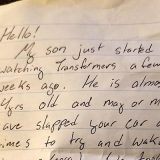 Hello!
My son just started
watching Transformers a few
weeks ago. He is almo
yrs old and may or m
ave slapped your car a
imes to try and wake